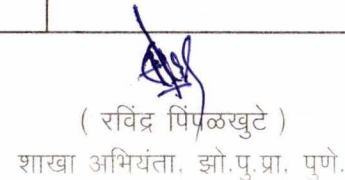 ( रविंद्र पिंपळखुटे )
शाखा अभियंता, झो.पु.प्रा. पुणे.